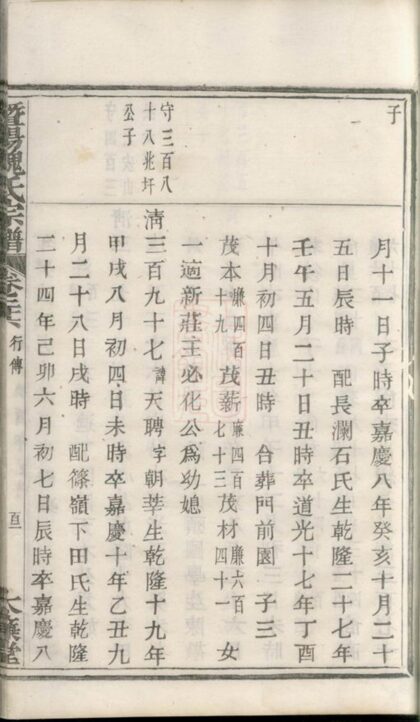 子
月十一日子時卒嘉慶八年癸亥十月二十
五日辰時　配長瀾石氏生乾隆二十七年
壬午五月二十日丑時卒道光十七年丁酉
十月初四日丑時　合葬門前園　子三
茂本廉四百十九茂薪廉四百七十三茂材廉六百四十一　女
一適新莊主必化公爲幼媳
守三百八
十八兆坪
公子
淸三百九十七諱天聘字朝莘生乾隆十九年
甲戌八月初四日未時卒嘉慶十年乙丑九
月二十八日戌時　配篠嶺下田氏生乾隆
二十四年己卯六月初七日辰時卒嘉慶八
暨陽魏氏宗譜　卷三六　行傳